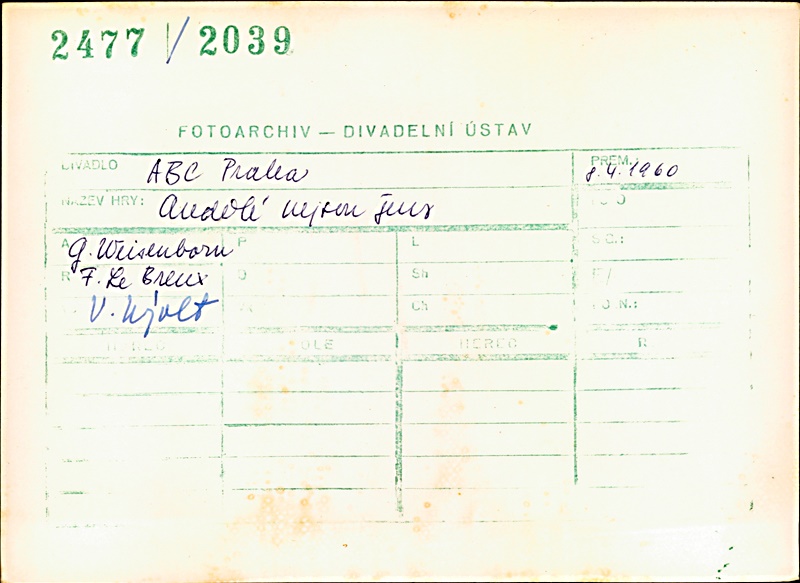 2477 / 2039
FOTOARCHIV — DIVADELNÍ ÚSTAV
DIVADLO ABC Praha PREM.: 8.4.1960
NÁZEV HRY: Andělé nejsou ženy
A G. Weisenborn P L S C.:
R F. Le Breux O Sh F/
V. Nývlt Ch O N.:
HEREC ROLE HEREC R